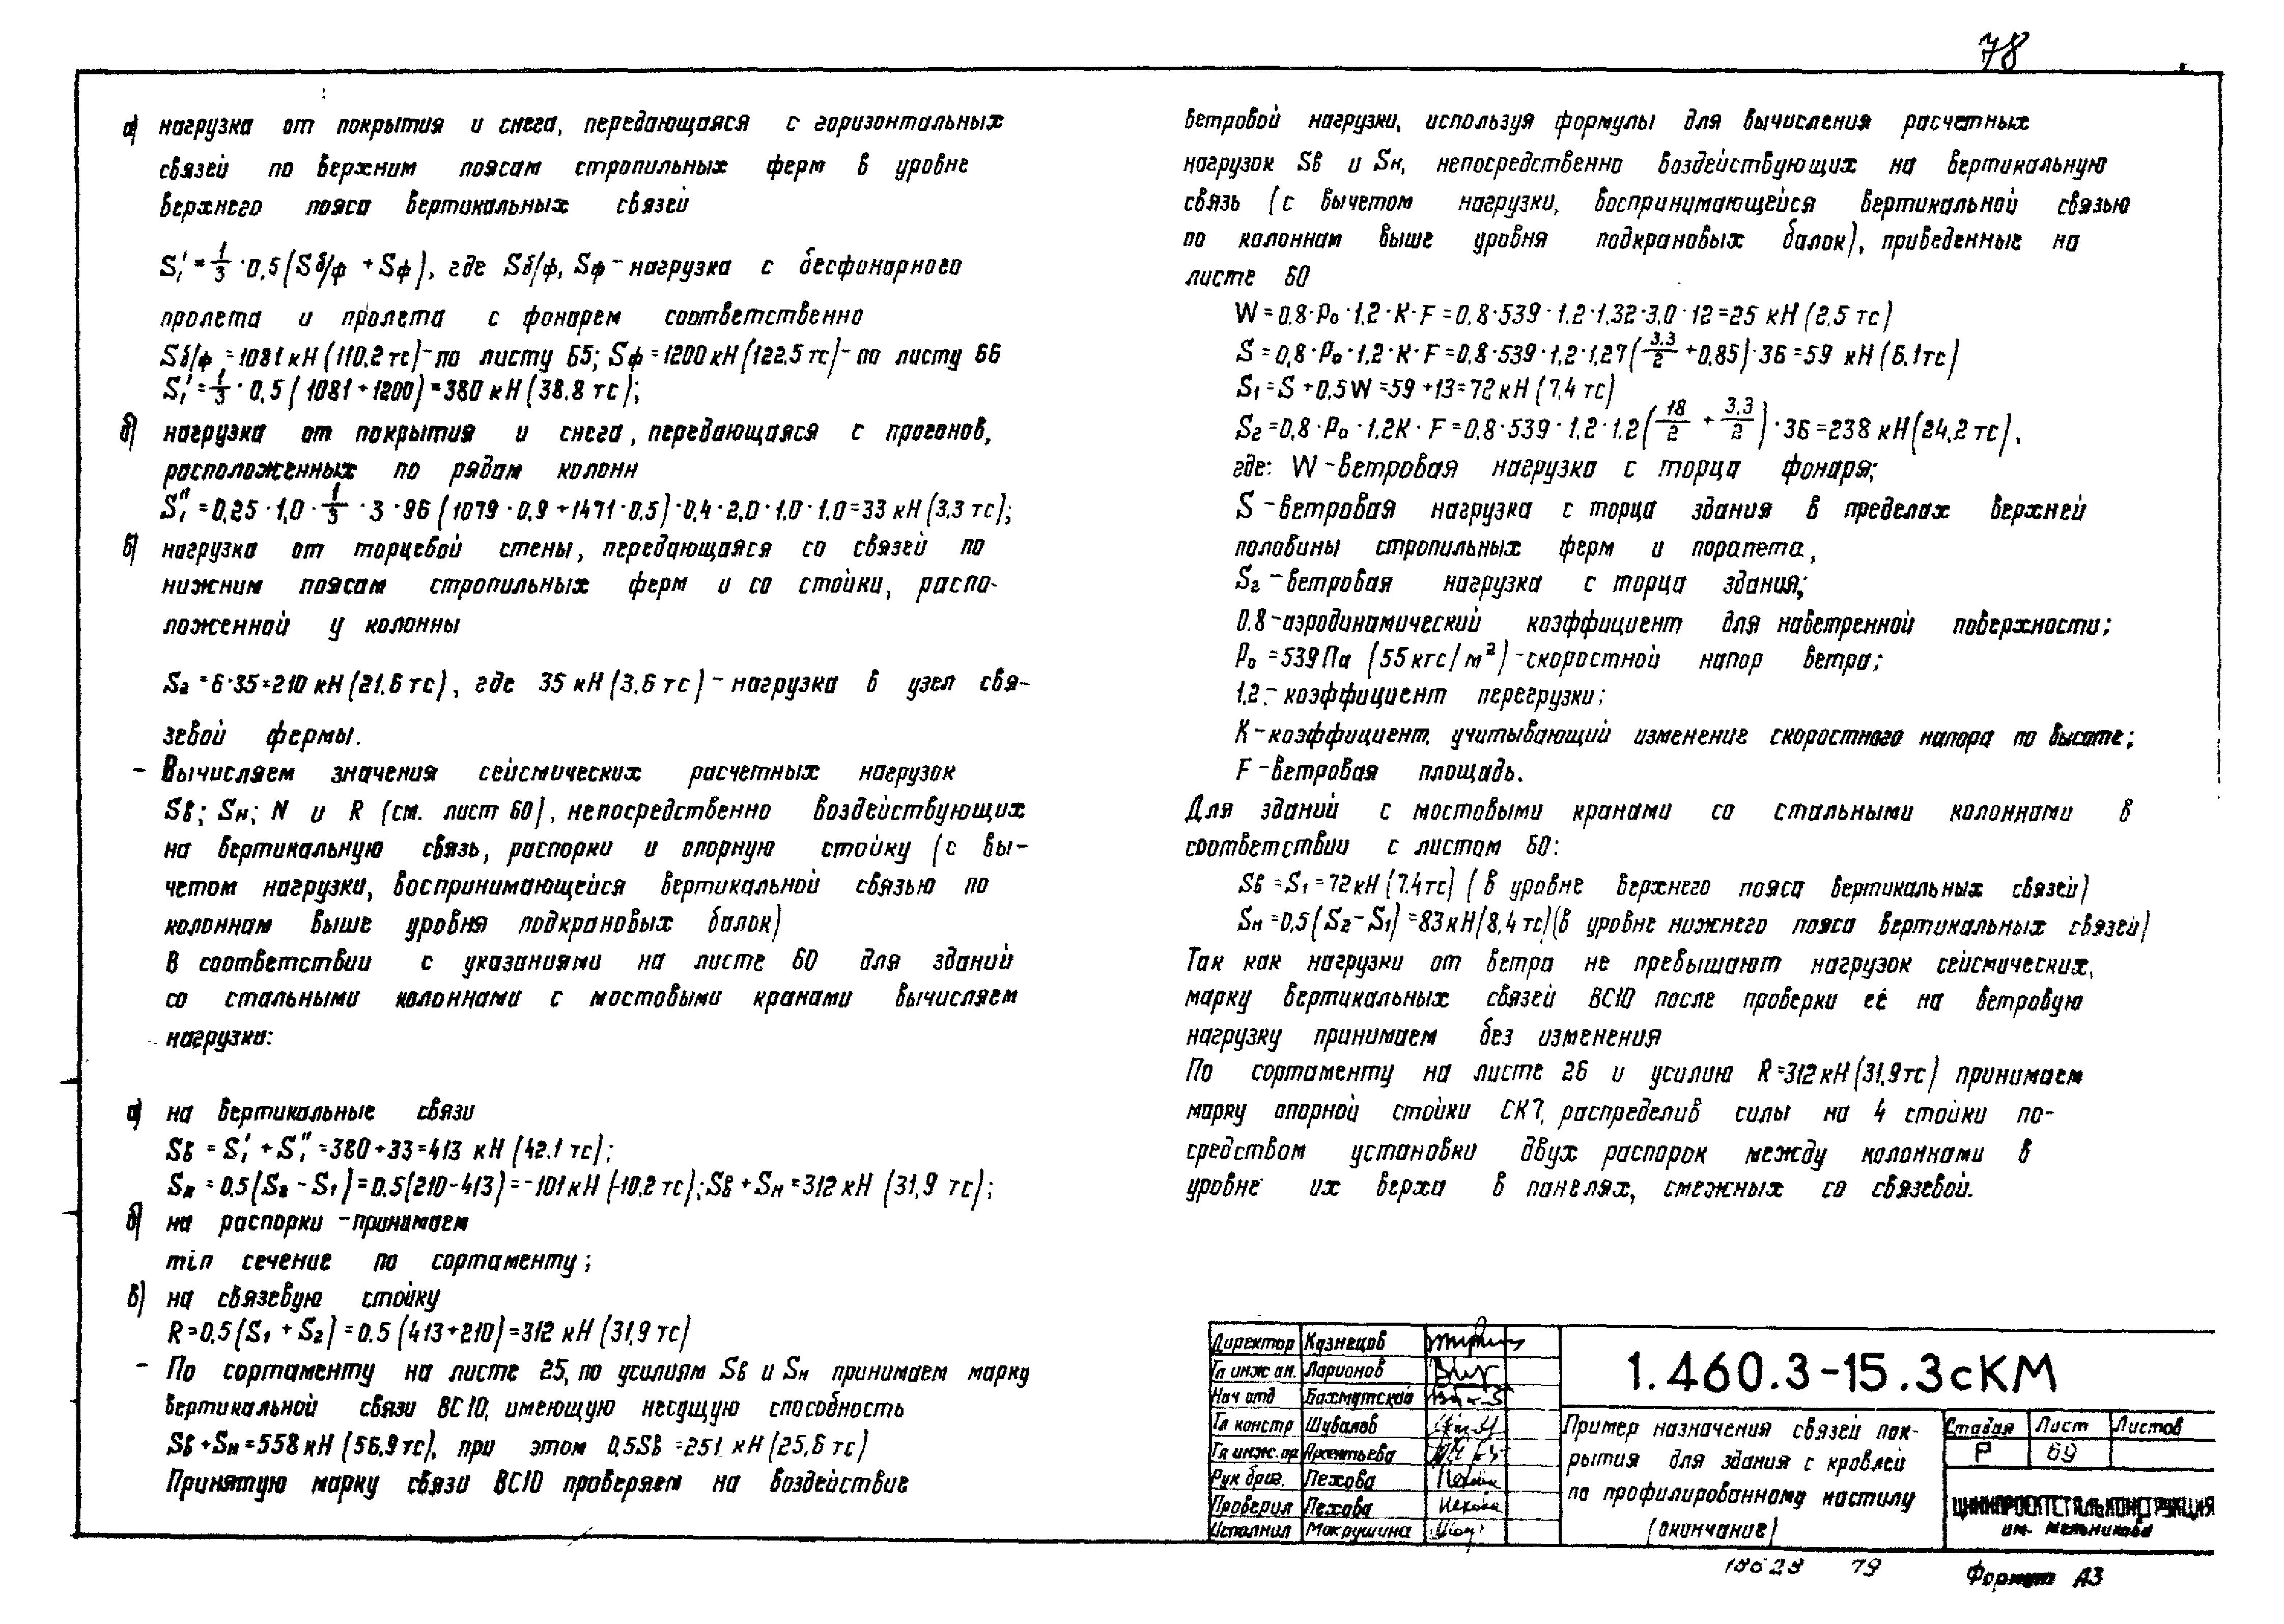 78
а) нагрузка от покрытия и снега, передающаяся с горизонтальных
связей по верхним поясам стропильных ферм в уровне
верхнего пояса вертикальных связей
S₁' = 1/3 · 0,5 (Sб/ф + Sф), где Sб/ф, Sф - нагрузка с бесфонарного
пролета и пролета с фонарем соответственно
Sб/ф = 1081 кН (110,2 тс) - по листу 65; Sф = 1200 кН (122,5 тс) - по листу 66
S₁' = 1/3 · 0,5 (1081 + 1200) = 380 кН (38.8 тс);
б) нагрузка от покрытия и снега, передающаяся с прогонов,
расположенных по рядам колонн
S₁" = 0,25 · 1,0 · 1/3 · 3 · 96 (1079 · 0,9 + 1471 · 0.5) · 0,4 · 2,0 · 1.0 · 1.0 = 33 кН (3.3 тс);
в) нагрузка от торцевой стены, передающаяся со связей по
нижним поясам стропильных ферм и со стойки, распо-
ложенной у колонны
S₂ = 6·35 = 210 кН (21.6 тс), где 35 кН (3,6 тс) - нагрузка в узел свя-
зевой фермы.
- Вычисляем значения сейсмических расчетных нагрузок
Sв; Sн; N и R (см. лист 60), непосредственно воздействующих
на вертикальную связь, распорки и опорную стойку (с вы-
четом нагрузки, воспринимающейся вертикальной связью по
колоннам выше уровня подкрановых балок)
В соответствии с указаниями на листе 60 для зданий
со стальными колоннами с мостовыми кранами вычисляем
нагрузки:
а) на вертикальные связи
Sв = S₁' + S₁" = 380 + 33 = 413 кН (42.1 тс);
Sн = 0.5 (S₂ - S₁) = 0.5 (210-413) = -101 кН (-10,2 тс); Sв + Sн = 312 кН (31,9 тс);
б) на распорки - принимаем
min сечение по сортаменту;
в) на связевую стойку
R = 0,5 (S₁ + S₂) = 0.5 (413+210) = 312 кН (31,9 тс)
- По сортаменту на листе 25, по усилиям Sв и Sн принимаем марку
вертикальной связи ВС10, имеющую несущую способность
Sв + Sн = 558 кН (56,9 тс), при этом 0,5Sв = 251 кН (25,6 тс)
Принятую марку связи ВС10 проверяем на воздействие
ветровой нагрузки, используя формулы для вычисления расчетных
нагрузок Sв и Sн, непосредственно воздействующих на вертикальную
связь (с вычетом нагрузки, воспринимающейся вертикальной связью
по колоннам выше уровня подкрановых балок), приведенные на
листе 60
W = 0,8 · P₀ · 1,2 · K · F = 0,8 · 539 · 1.2 · 1,32 · 3,0 · 12 = 25 кН (2,5 тс)
S = 0,8 · P₀ · 1,2 · K · F = 0,8 · 539 · 1,2 · 1,27 (3,3/2 + 0,85) · 36 = 59 кН (6.1тс)
S₁ = S + 0,5 W = 59 + 13 = 72 кН (7,4 тс)
S₂ = 0,8 · P₀ · 1.2K · F = 0.8 · 539 · 1.2 · 1.2 (18/2 + 3,3/2) · 36 = 238 кН (24,2 тс),
где: W - ветровая нагрузка с торца фонаря;
S - ветровая нагрузка с торца здания в пределах верхней
половины стропильных ферм и парапета,
S₂ - ветровая нагрузка с торца здания;
0.8 - аэродинамический коэффициент для наветренной поверхности;
P₀ = 539 Па (55 кгс/м²) - скоростной напор ветра;
1,2 - коэффициент перегрузки;
K - коэффициент, учитывающий изменение скоростного напора по высоте;
F - ветровая площадь.
Для зданий с мостовыми кранами со стальными колоннами в
соответствии с листом 60:
Sв = S₁ = 72 кН (7.4 тс) (в уровне верхнего пояса вертикальных связей)
Sн = 0,5 (S₂ - S₁) = 83 кН (8,4 тс) (в уровне нижнего пояса вертикальных связей)
Так как нагрузки от ветра не превышают нагрузок сейсмических,
марку вертикальных связей ВС10 после проверки её на ветровую
нагрузку принимаем без изменения
По сортаменту на листе 26 и усилию R = 312 кН (31,9 тс) принимаем
марку опорной стойки СК7, распределив силы на 4 стойки по-
средством установки двух распорок между колоннами в
уровне их верха в панелях, смежных со связевой.
Директор Кузнецов
Гл инж ин. Ларионов
Нач отд Бахмутский
Гл констр Шувалов
Гл инж. пр Аркентьева
Рук бриг. Пехова
Проверил Пехова
Исполнил Мокрушина
1.460.3-15.3сКМ
Пример назначения связей пок-
рытия для здания с кровлей
по профилированному настилу
(окончание)
Стадия Лист Листов
Р 69
ЦНИИПРОЕКТСТАЛЬКОНСТРУКЦИЯ
им. Мельникова
18628 79
Формат А3